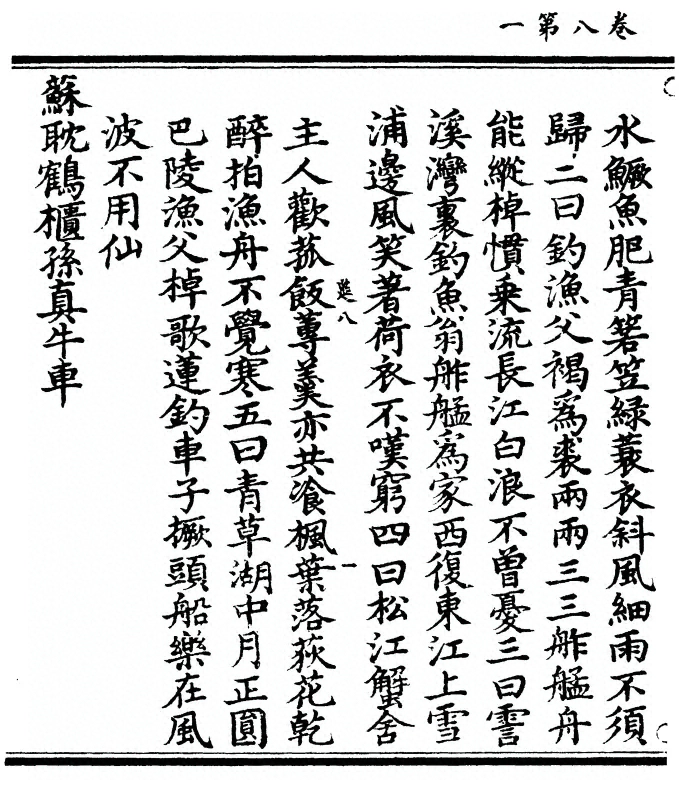 卷八第一
水鱖魚肥青箬笠緑蓑衣斜風細雨不須
歸二曰釣漁父褐爲裘兩兩三三舴艋舟
能縱棹慣乗流長江白浪不曽憂三曰霅
溪灣裏釣魚翁舴艋爲家西復東江上雪
浦邊風笑著荷衣不嘆窮四曰松江蟹舍
八 一
主人歡菰飯蓴羹亦共飡楓葉落荻花乾
醉拍漁舟不覺寒五曰青草湖中月正圓
巴陵漁父棹歌蓮釣車子橛頭船樂在風
波不用仙
蘇耽鶴櫃孫真牛車